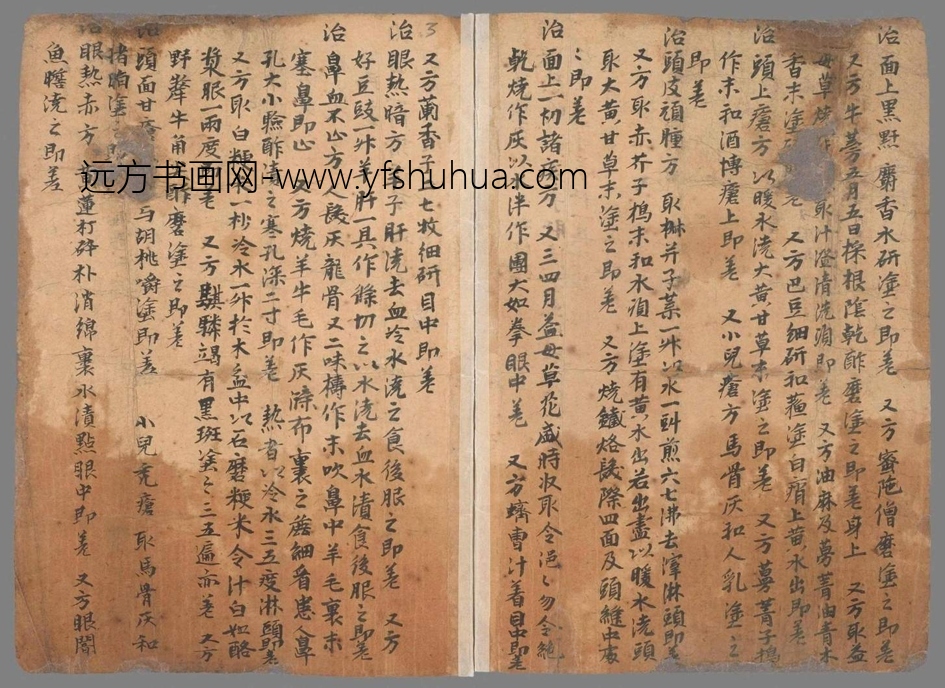 治面上黑䵟 麝香水研塗之即差 又方蜜陁僧磨塗之即差
又方牛蒡五月五日採根陰乾酢磨塗之即差身上 又方取益
母草燒 取汁澄清洗頭即差 又方油麻及蔓菁油青木
香末塗 差 又方巴豆細研和蘓塗白屑上黄水出即差
治頭上瘡方 以暖水洗大黄甘草末塗之即差 又方蔓菁子搗
作末和酒博瘡上即差 又小兒瘡方馬骨灰和人乳塗之
即差
治頭皮頑腫方 取椒并子葉一升以水一㪷煎六七沸去滓淋頭即差
又方取赤芥子搗末和水頭上塗有黄水出若出盡以暖水洗頭
取大黄甘草末塗之即差 又方燒鐵烙髮際四面及頭縫中處
〻即差
治面上一切諸瘡方 又三四月益母草花盛時收取令浥〻勿令絶
乾燒作灰以水伴作團大如拳眼中差 又方蠐曹汁着目中即差
又方蘭香子七枚細研目中即差
治眼熱暗方 子肝澆去血冷水澆之食後服之即差 又方
好豆豉一升羊肝一具作條切之以水洗去血水漬食後服之即差
治鼻血不止方 人髮灰龍骨又二味擣作末吹鼻中羊毛裏末
塞鼻即止 又方燒羊牛毛作灰綿布裏之蔗細看患人鼻
孔大小驗酢漬之塞孔深二寸即差 熱者以冷水三五度淋頭即差
又方取白粳 一抄冷水一升於木盆中以石磨粳米令汁白如酪
漿眼一兩度 差 又方騏驎竭有黑班塗之三五遍亦差 又方
野犛牛角酢磨塗之即差
治頭面甘瘡 与胡桃嚼塗即差 小兒禿瘡 取馬骨灰和
猪脂塗之即
治眼熱赤方 蓮打碎朴消綿裏水漬點眼中即差 又方眼闇
魚膽澆之即差
远方书画网-www.yfshuhua.com